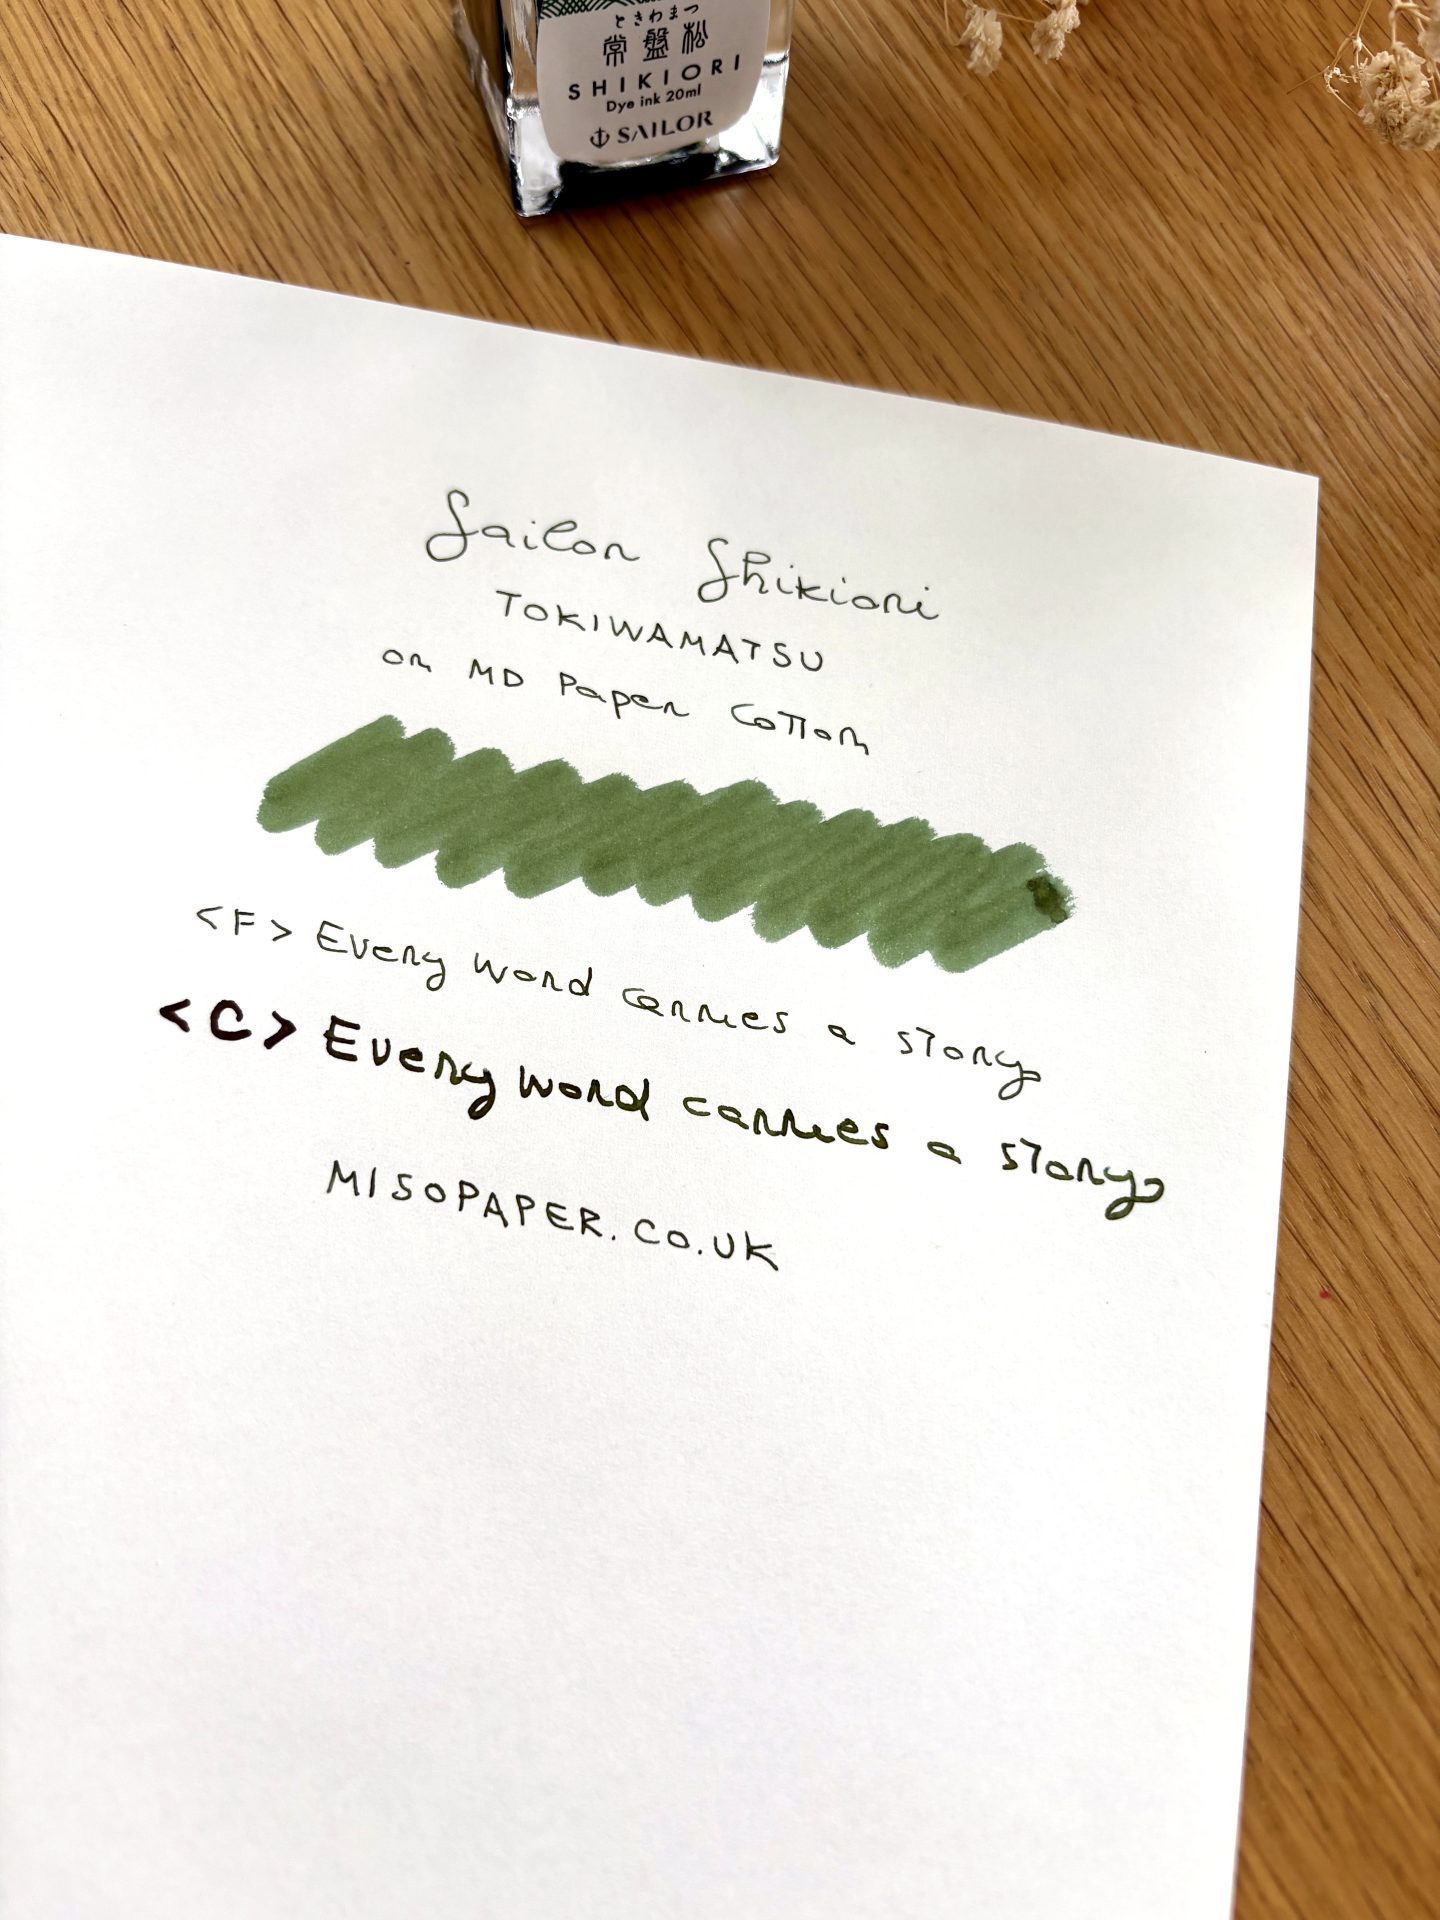 ときわまつ
常盤松
SHIKIORI
Dye ink 20ml
SAILOR
Sailor Shikiori
TOKIWAMATSU
on MD Paper Cotton
<F> Every word carries a story
<C> Every word carries a story
MISOPAPER.CO.UK